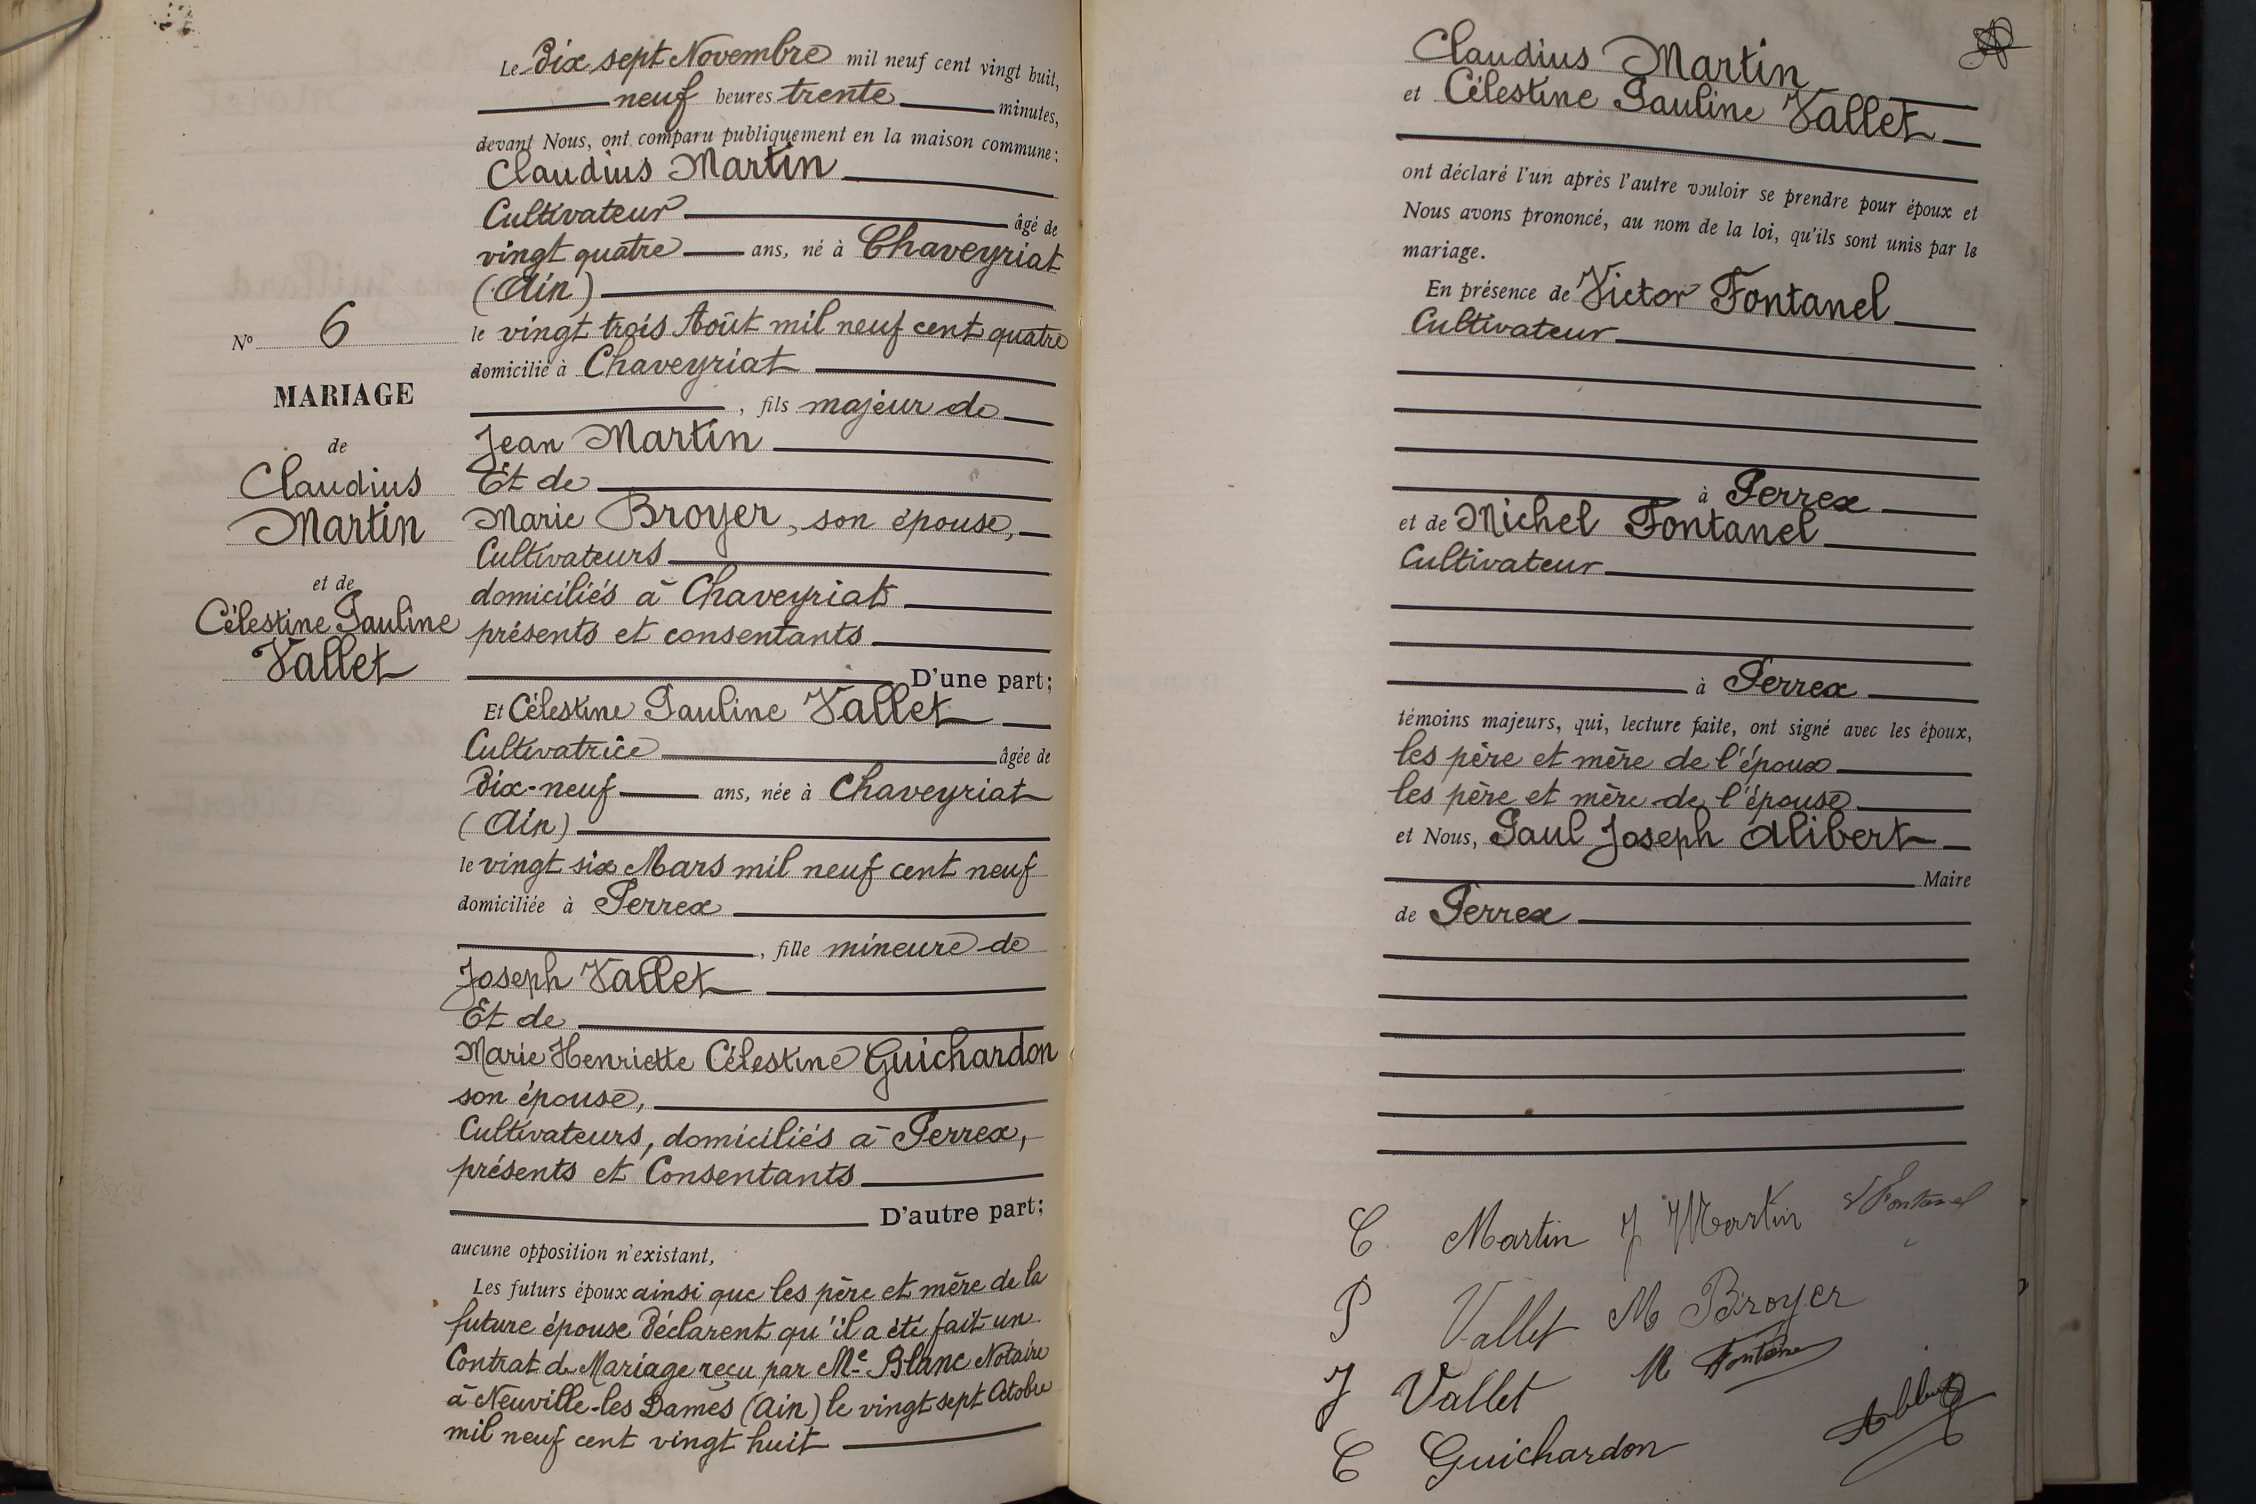 Le Dix sept Novembre mil neuf cent vingt huit,
neuf heures trente minutes,
devant Nous, ont comparu publiquement en la maison commune :
Claudius Martin
Cultivateur âgé de
vingt quatre ans, né à Chaveyriat
(Ain)
le vingt trois Août mil neuf cent quatre
domicilié à Chaveyriat
, fils majeur de
Jean Martin
Et de
Marie Broyer, son épouse,
Cultivateurs
domiciliés à Chaveyriat
présents et consentants
D'une part ;
Et Célestine Pauline Vallet
Cultivatrice âgée de
Dix-neuf ans, née à Chaveyriat
(Ain)
le vingt six Mars mil neuf cent neuf
domiciliée à Perrex
, fille mineure de
Joseph Vallet
Et de
Marie Henriette Célestine Guichardon
son épouse,
Cultivateurs, domiciliés à Perrex,
présents et Consentants
D'autre part ;
aucune opposition n'existant,
Les futurs époux ainsi que les père et mère de la
future épouse Déclarent qu'il a été fait un
Contrat de Mariage reçu par Me Blanc Notaire
à Neuville-les Dames (Ain) le vingt sept Octobre
mil neuf cent vingt huit
No 6
MARIAGE
de
Claudius
Martin
et de
Célestine Pauline
Vallet
Claudius Martin
et Célestine Pauline Vallet
ont déclaré l'un après l'autre vouloir se prendre pour époux et
Nous avons prononcé, au nom de la loi, qu'ils sont unis par le
mariage.
En présence de Victor Fontanel
Cultivateur
à Perrex
et de Michel Fontanel
Cultivateur
à Perrex
témoins majeurs, qui, lecture faite, ont signé avec les époux,
les père et mère de l'époux
les père et mère de l'épouse
et Nous, Paul Joseph Alibert
Maire
de Perrex
C Martin J Martin V Fontanel
P Vallet M Broyer
J Vallet M Fontanel
C Guichardon